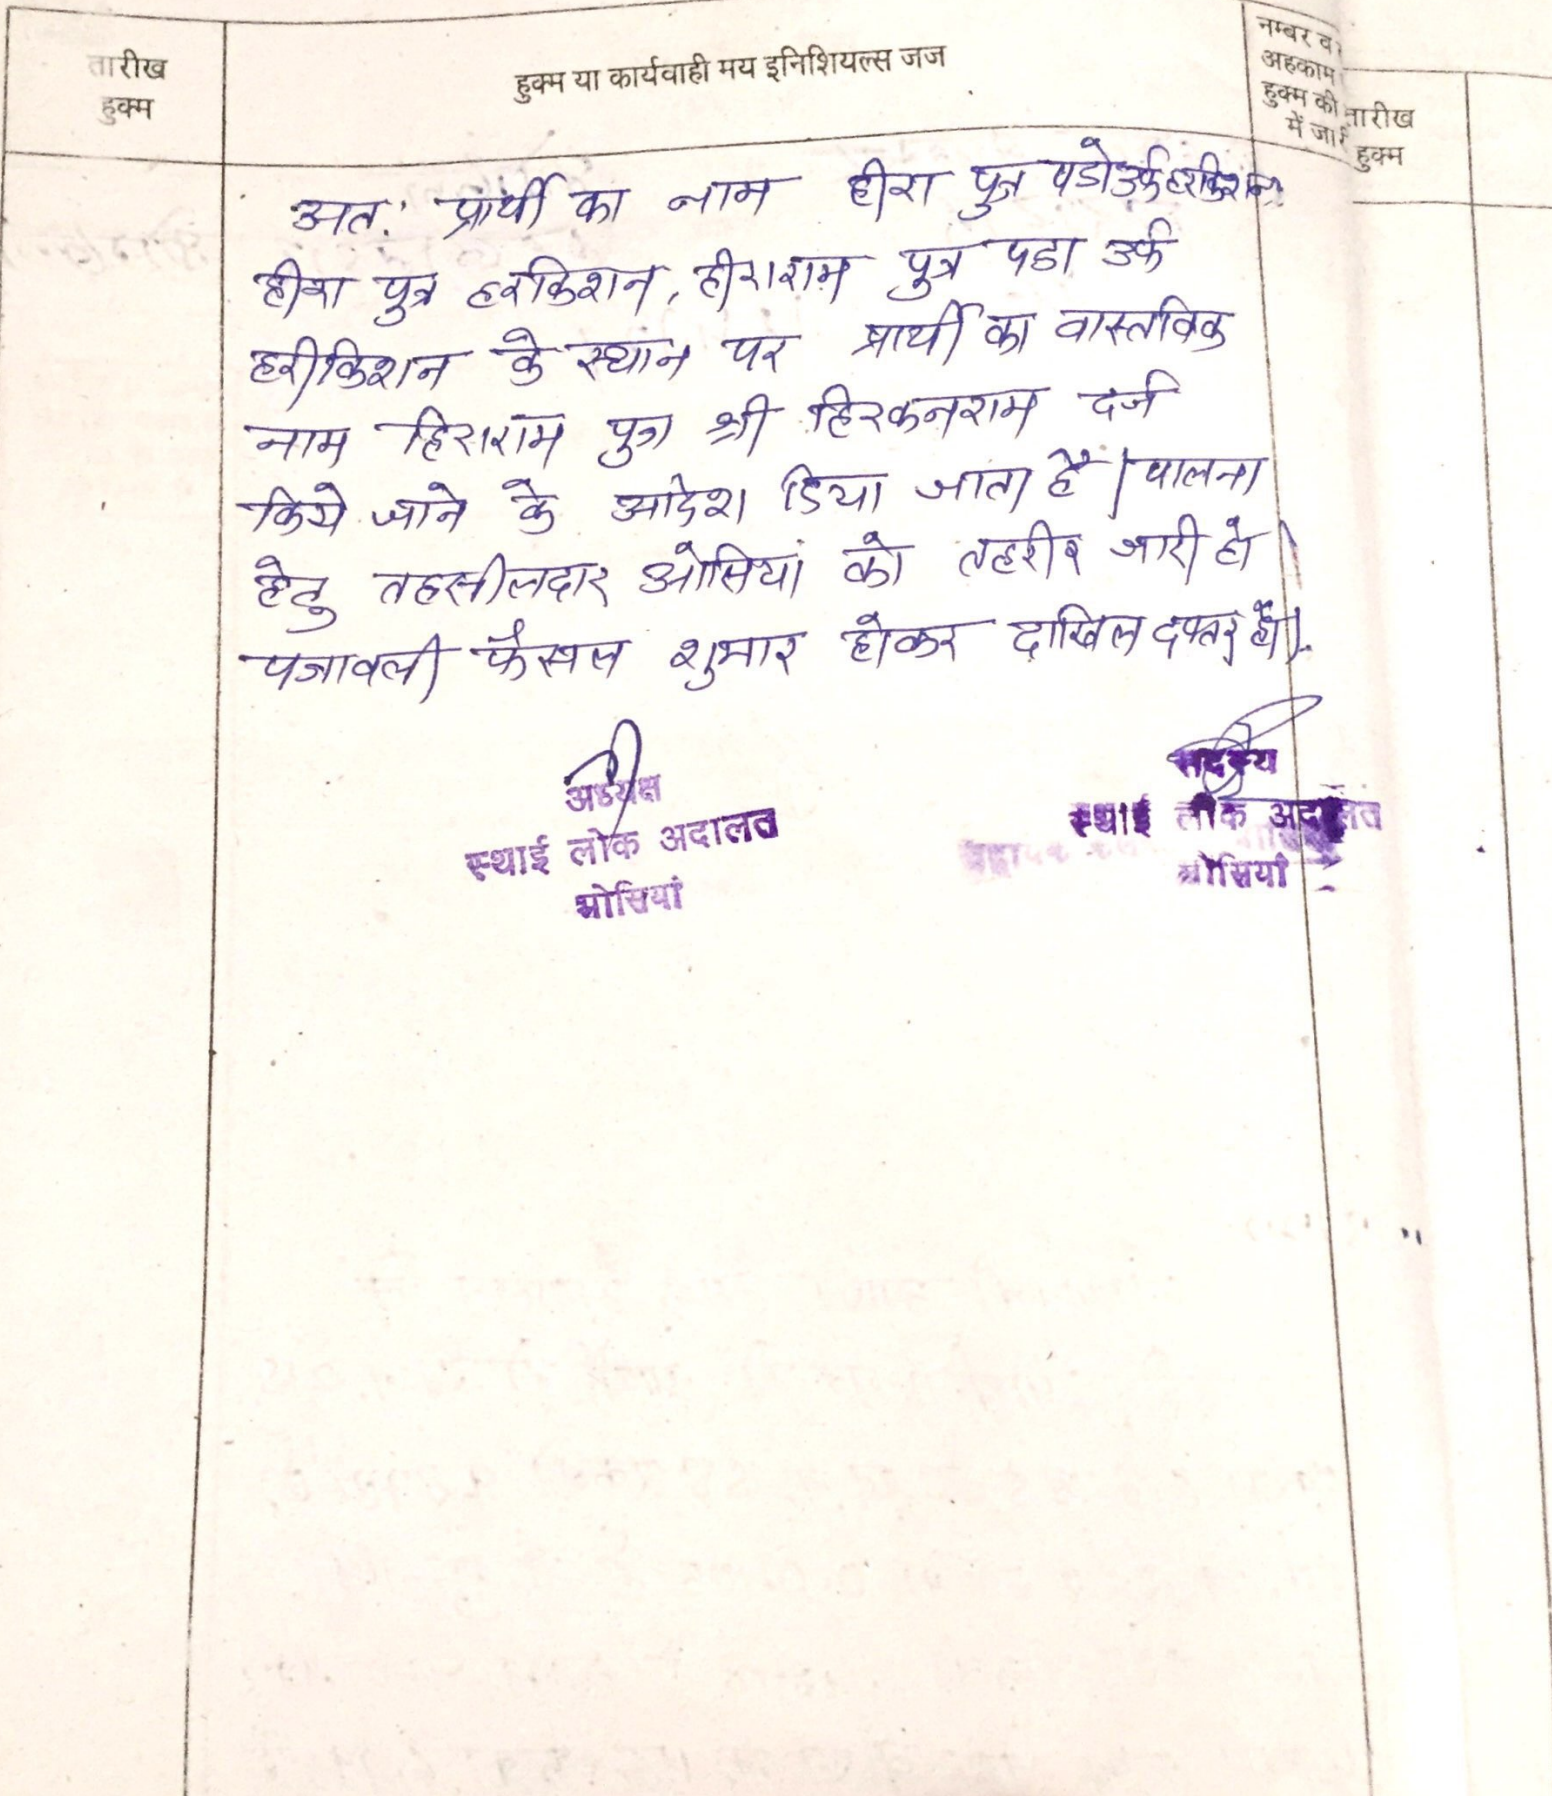 तारीख
हुक्म
हुक्म या कार्यवाही मय इनिशियल्स जज
नम्बर व
अहकाम
हुक्म की
में जारी
तारीख
हुक्म
अतः प्रार्थी का नाम हीरा पुत्र पडो उर्फ हरकिशन,
हीरा पुत्र हरकिशन, हीराराम पुत्र पडा उर्फ
हरीकिशन के स्थान पर प्रार्थी का वास्तविक
नाम हिराराम पुत्र श्री हिरकनराम दर्ज
किये जाने के आदेश दिया जाता है। पालना
हेतु तहसीलदार ओसियां को तहरीर जारी हो।
पत्रावली फैसल शुमार होकर दाखिल दफ्तर हो।
अध्यक्ष
स्थाई लोक अदालत
ओसियां
सदस्य
स्थाई लोक अदालत
ओसियां